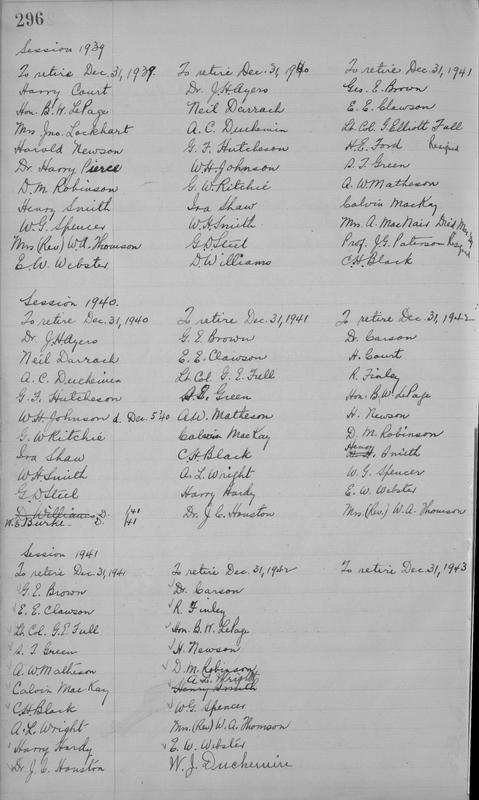 296
Session 1939
To retire Dec. 31, 1939.
Harry Court
Hon. B. W. LePage
Mrs Jno. Lockhart
Harold Newson
Dr. Harry Pierce
D. M. Robinson
Henry Smith
W. G. Spencer
Mrs (Rev) W. A. Thomson
E. W. Webster
To retire Dec. 31, 1940
Dr. J. H. Ayers
Neil Darrach
A. C. Duchemin
G. F. Hutcheson
W. H. Johnson
G. W. Ritchie
Ira Shaw
W. H. Smith
G. D. Steel
D Williams
To retire Dec. 31, 1941
Geo. E. Brown
E. E. Clawson
Lt. Col. G Elliott Full
H. E. Ford Resigned
S. T. Green
A. W. Matheson
Calvin MacKay
Mrs. A. MacNair Died
Prof. J. G. Paterson Resigned
C. H. Black
Session 1940.
To retire Dec. 31, 1940
Dr. J. H. Ayers
Neil Darrach
A. C. Duchemin
G. F. Hutcheson
W. H. Johnson d. Dec. 5 40
G. W. Ritchie
Ira Shaw
W. H. Smith
G. D. Steel
D. Williams D. /41
W. E. Burke. D. /41
To retire Dec. 31, 1941
G. E. Brown
E. E. Clawson
Lt. Col. G. E. Full
Green
A. W. Matheson
Calvin MacKay
C. H. Black
A. L. Wright
Harry Hardy
Dr. J. C. Houston
To retire Dec. 31, 1942
Dr. Carson
H. Court
R. Finley
Hon. B. W. LePage
H. Newson
D. M. Robinson
Henry Smith
W. G. Spencer
E. W. Webster
Mrs. (Rev.) W. A. Thomson
Session 1941
To retire Dec. 31, 1941
G. E. Brown
E. E. Clawson
Lt. Col. G. E. Full
S. T. Green
A. W. Matheson
Calvin MacKay
C. H. Black
A. L. Wright
Harry Hardy
Dr. J. C. Houston
To retire Dec. 31, 1942
Dr. Carson
R Finley
Hon. B. W. LePage
H. Newson
D. M. Robinson
A. L. Wright
Henry Smith
W. G. Spencer
Mrs. (Rev) W. A. Thomson
E. W. Webster
W. J. Duchemin
To retire Dec. 31, 1943